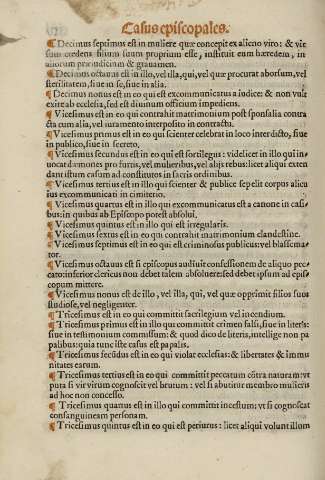 Casus episcopales.
¶ Decimus septimus est in muliere quæ concepit ex alieno viro: & vir
suus credens filium suum proprium esse, instituit eum hæredem, in
aliorum præiudicium & grauamen.
¶ Decimus octauus est in illo, vel illa, qui, vel quæ procurat aborsum, vel
sterilitatem, siue in se, siue in alia.
¶ Decimus nonus est in eo qui est excommunicatus a iudice: & non vult
exire ab ecclesia, sed est diuinum officium impediens.
¶ Vicesimus est in eo qui contrahit matrimonium post sponsalia contra
cta cum alia, vel iuramento interposito in contractu.
¶ Vicesimus primus est in eo qui scienter celebrat in loco interdicto, siue
in publico, siue in secreto.
¶ Vicesimus secundus est in eo qui est sortilegus: videlicet in illo qui in
uocat dæmones pro furtis, vel mulieribus, vel alijs rebus: licet aliqui exten
dant istum casum ad constitutos in sacris ordinibus.
¶ Vicesimus tertius est in illo qui scienter & publice sepelit corpus alicu
ius excommunicati in cimiterio.
¶ Vicesimus quartus est in illo qui excommunicatus est a canone in casi-
bus: in quibus ab Episcopo potest absolui.
¶ Vicesimus quintus est in illo qui est irregularis.
¶ Vicesimus sextus est in eo qui contrahit matrimonium clandestine.
¶ Vicesimus septimus est in eo qui est criminosus publicus: vel blasfema-
tor.
¶ Vicesimus octauus est si episcopus audiuit confessionem de aliquo pec-
cato: inferior clericus non debet talem absoluere: sed debet ipsum ad epis-
copum mittere.
¶ Vicesimus nonus est de illo, vel illa, qui, vel quæ oppsimit filios suos
studiose, vel negligenter.
¶ Tricesimus est in eo qui committit sacrilegium vel incendium.
¶ Tricesimus primus est in illo qui committit crimen falsi, siue in literis:
siue in testimonium commissum: & quod dico de literis, intellige non pa
palibus: quia tunc iste casus est papalis.
¶ Tricesimus secũdus est in eo qui violat ecclesias: & libertates & immu
nitates earum.
¶ Tricesimus tertius est in eo qui committit peccatum cõtra naturam: vt
puta si vir virum cognoscit vel brutum: vel si abutitur membro mulieris
ad hoc non concesso.
¶ Tricesimus quartus est in illo qui committit incestum: vt si cognoscat
consanguineam personam.
¶ Tricesimus quintus est in eo qui est periurus: licet aliqui volunt illum